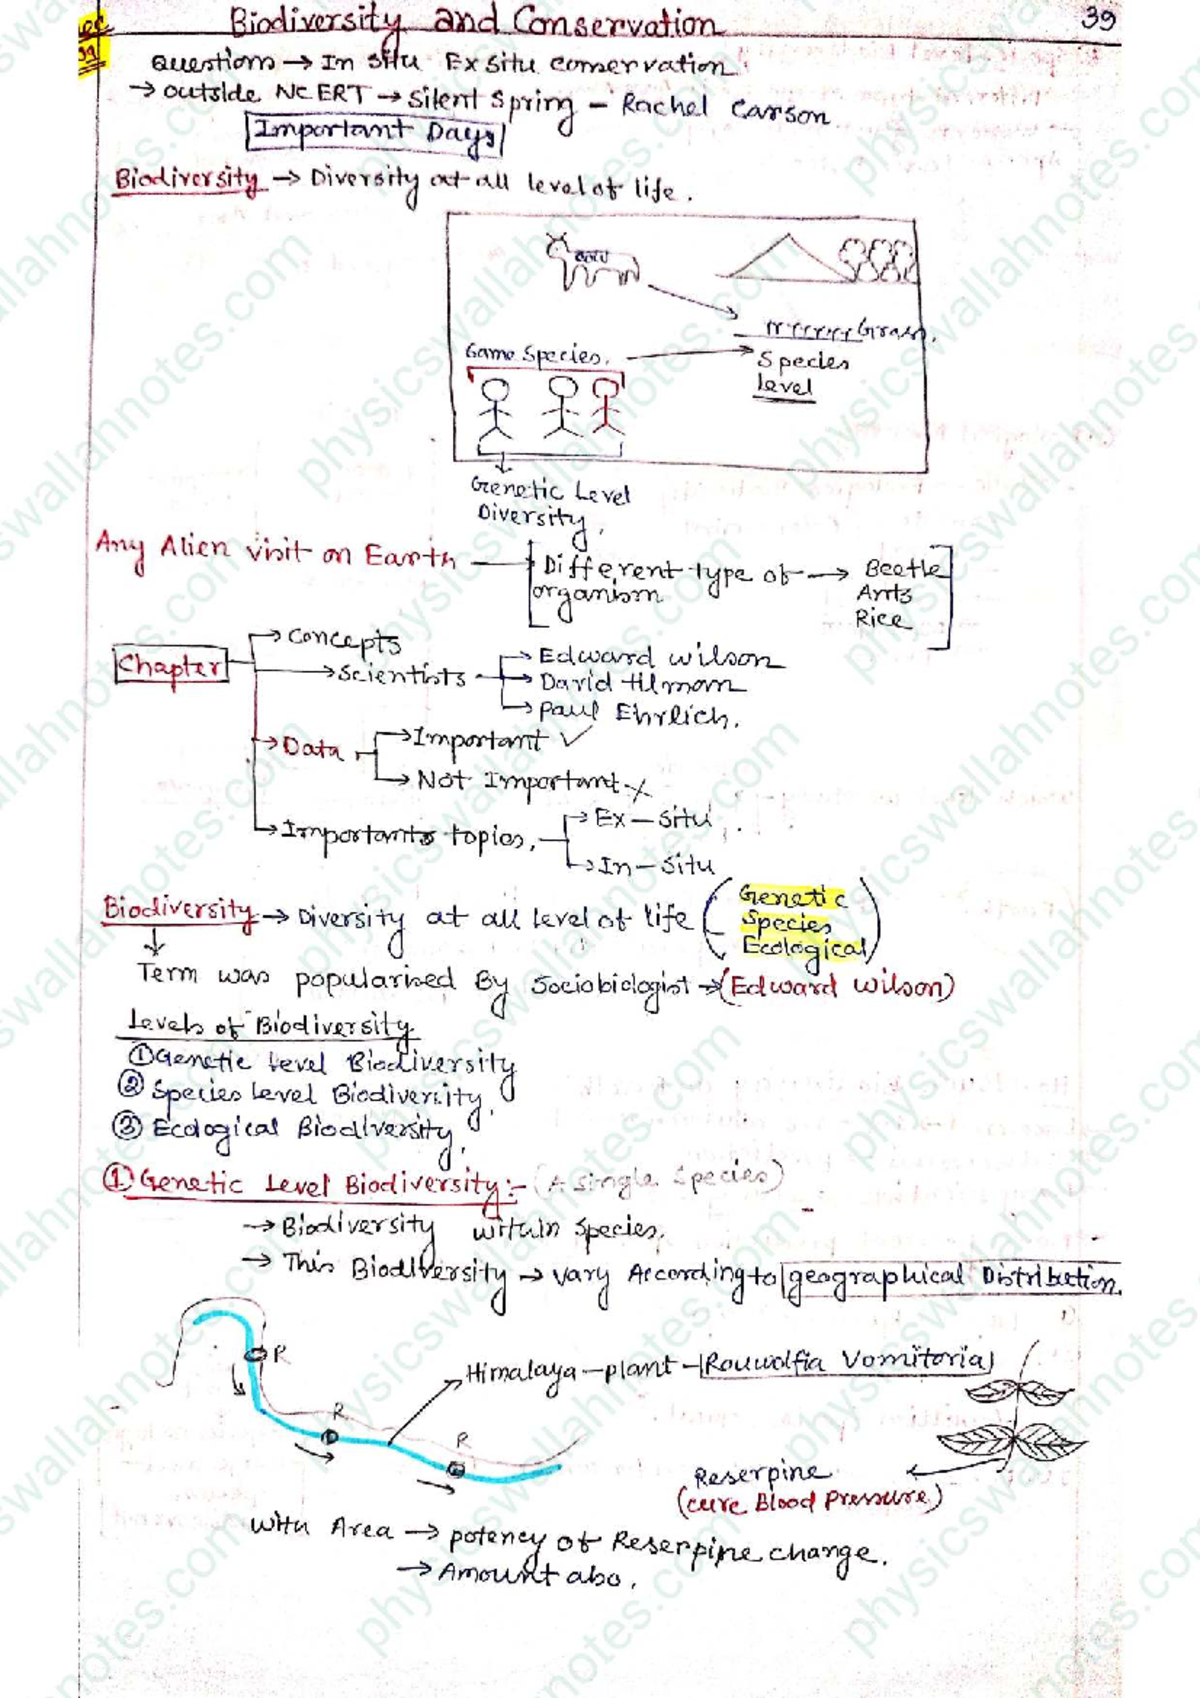 Lec
39
Biodiversity and Conservation
39
Questions → In situ Ex situ conservation
→ outside NCERT → Silent Spring - Rachel Carson
Important Days
Biodiversity → Diversity at all level of life.
cow
Grass.
Same Species.
Species
Level
Genetic Level
Diversity,
Any Alien visit on Earth
Different type of → Beetle
organism
Ants
Rice
Chapter
→ Concepts
→ Scientists
→ Edward wilson
→ David tilmam
→ Paul Ehrlich.
→ Data
→ Important ✓
→ Not Important ✗
→ Importants topics.
→ Ex - situ
→ In - situ
Biodiversity → Diversity at all level of life
Genetic
Species
Ecological
Term was popularised By Sociobiologist → (Edward wilson)
Levels of Biodiversity
① Genetic Level Biodiversity
② Species Level Biodiversity,
③ Ecological Biodiversity,
① Genetic Level Biodiversity:- (A single Species)
→ Biodiversity within Species.
→ This Biodiversity → vary According to geographical Distribution.
R
R
R
Himalaya - plant - Rouwolfia Vomitoria
Reserpine
(cure Blood Pressure)
With Area → potency of Reserpine change.
→ Amount also.
physicswallahnotes.com